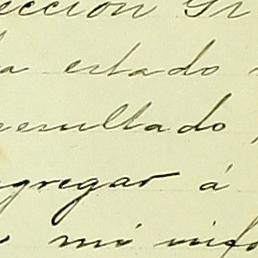 ección Gr
a estado
resultado
agregar á
mi info